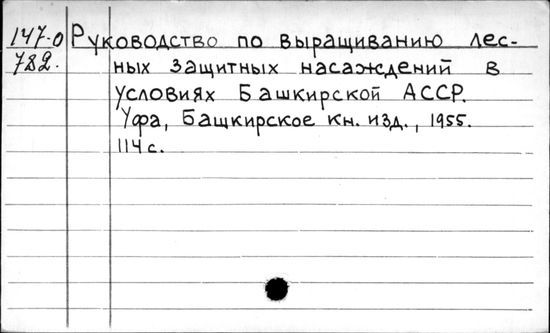 147-0 Руководство по выращиванию лес-
782. ных защитных насаждений в
условиях Башкирской АССР.
Уфа, Башкирское кн. изд., 1955.
114 с.